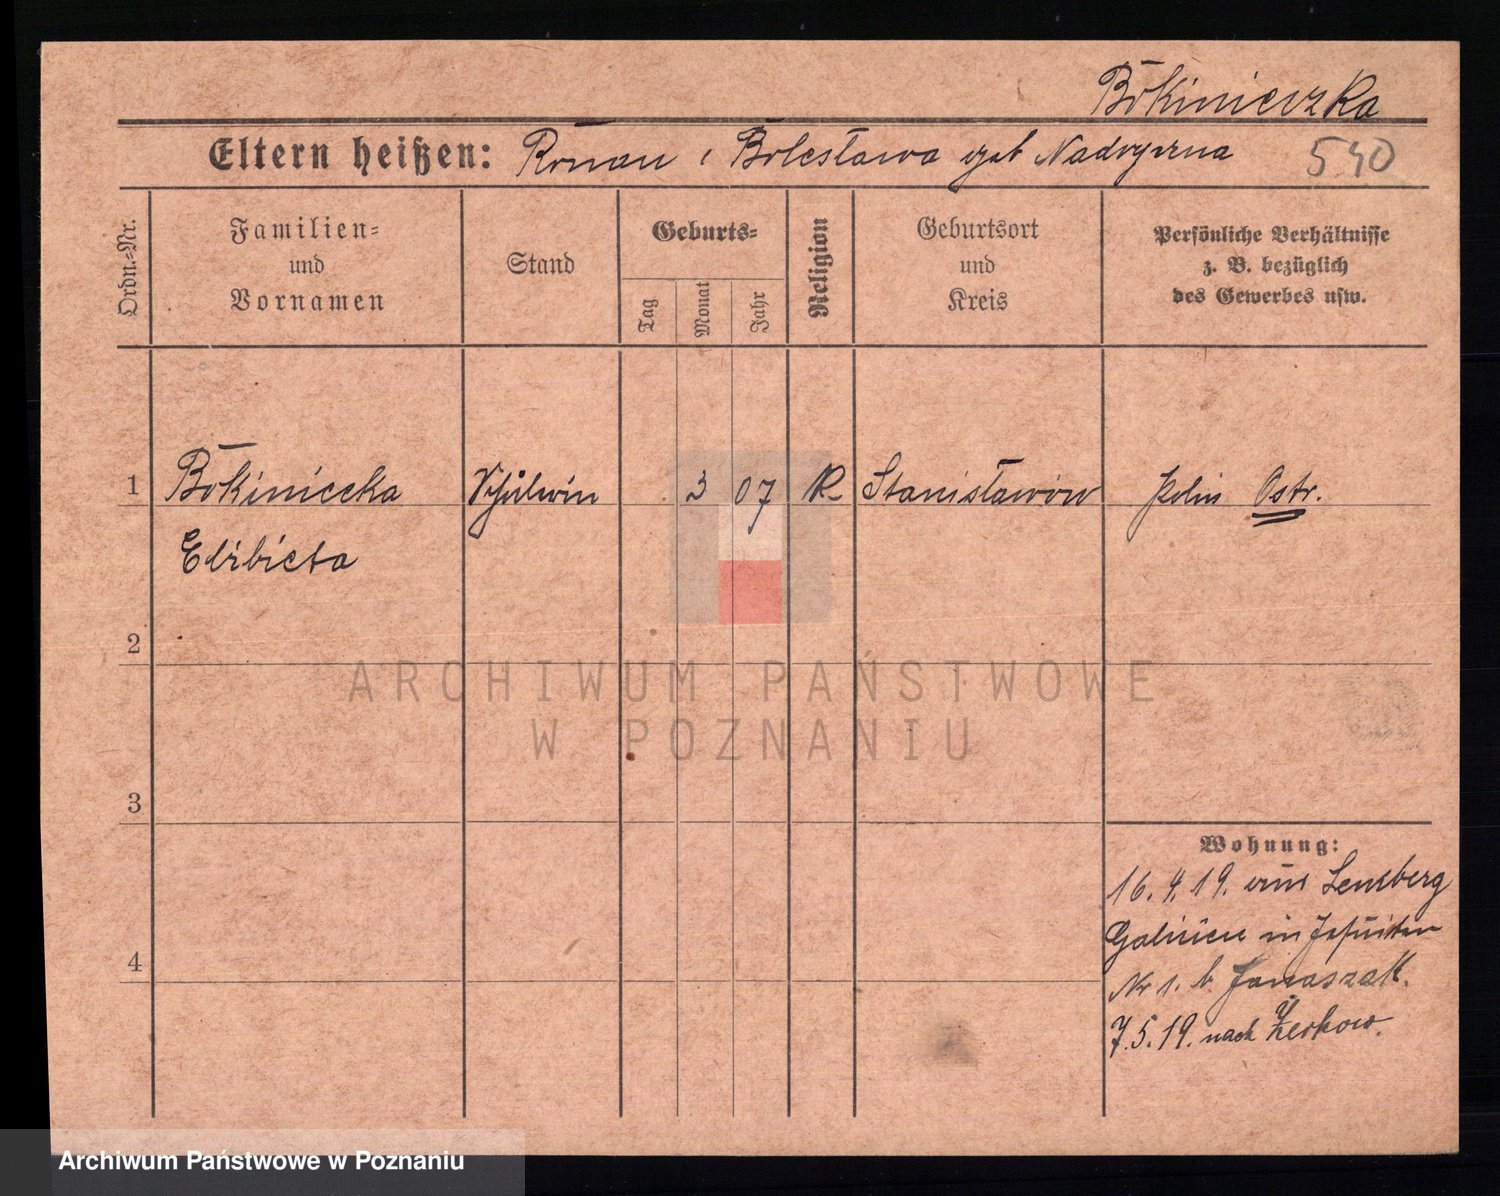 Bokinieczka
Eltern heißen: Roman i Bolesława geb Nadvyzna
540
Ordn.-Nr.
Familien-
und
Vornamen
Stand
Geburts-
Tag
Monat
Jahr
Religion
Geburtsort
und
Kreis
Persönliche Verhältnisse
z. B. bezüglich
des Gewerbes usw.
1 Bokiniecka Schülerin 3 07 R. Stanisławów Polin Ostr.
Elżbieta
2
3
4
Wohnung:
16.4.19. aus Lemberg
Galizien in Jesuiten
Nr 1. b. Janaszak.
7.5.19. nach Żerkow.
ARCHIWUM PAŃSTWOWE
W POZNANIU
Archiwum Państwowe w Poznaniu